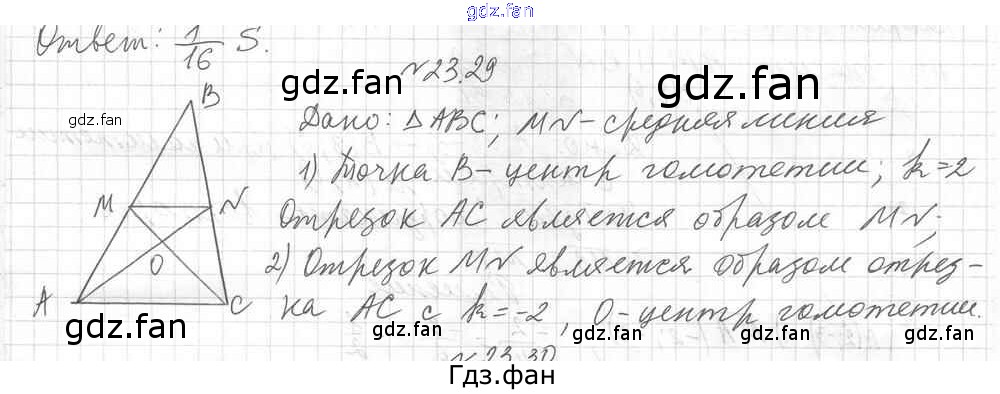 gdz.fan
Ответ: 1/16 S.
№23.29
gdz.fan
gdz.fan
gdz.fan
B
Дано: △ABC; MN - средняя линия
1) Точка B - центр гомотетии; k=2
M
N
Отрезок AC является образом MN;
O
2) Отрезок MN является образом отрез-
A
C
ка AC с k=-2, O-центр гомотетии.
gdz.fan
gdz.fan
gdz.fan
gdz.fan
№23.30
Гдз.фан